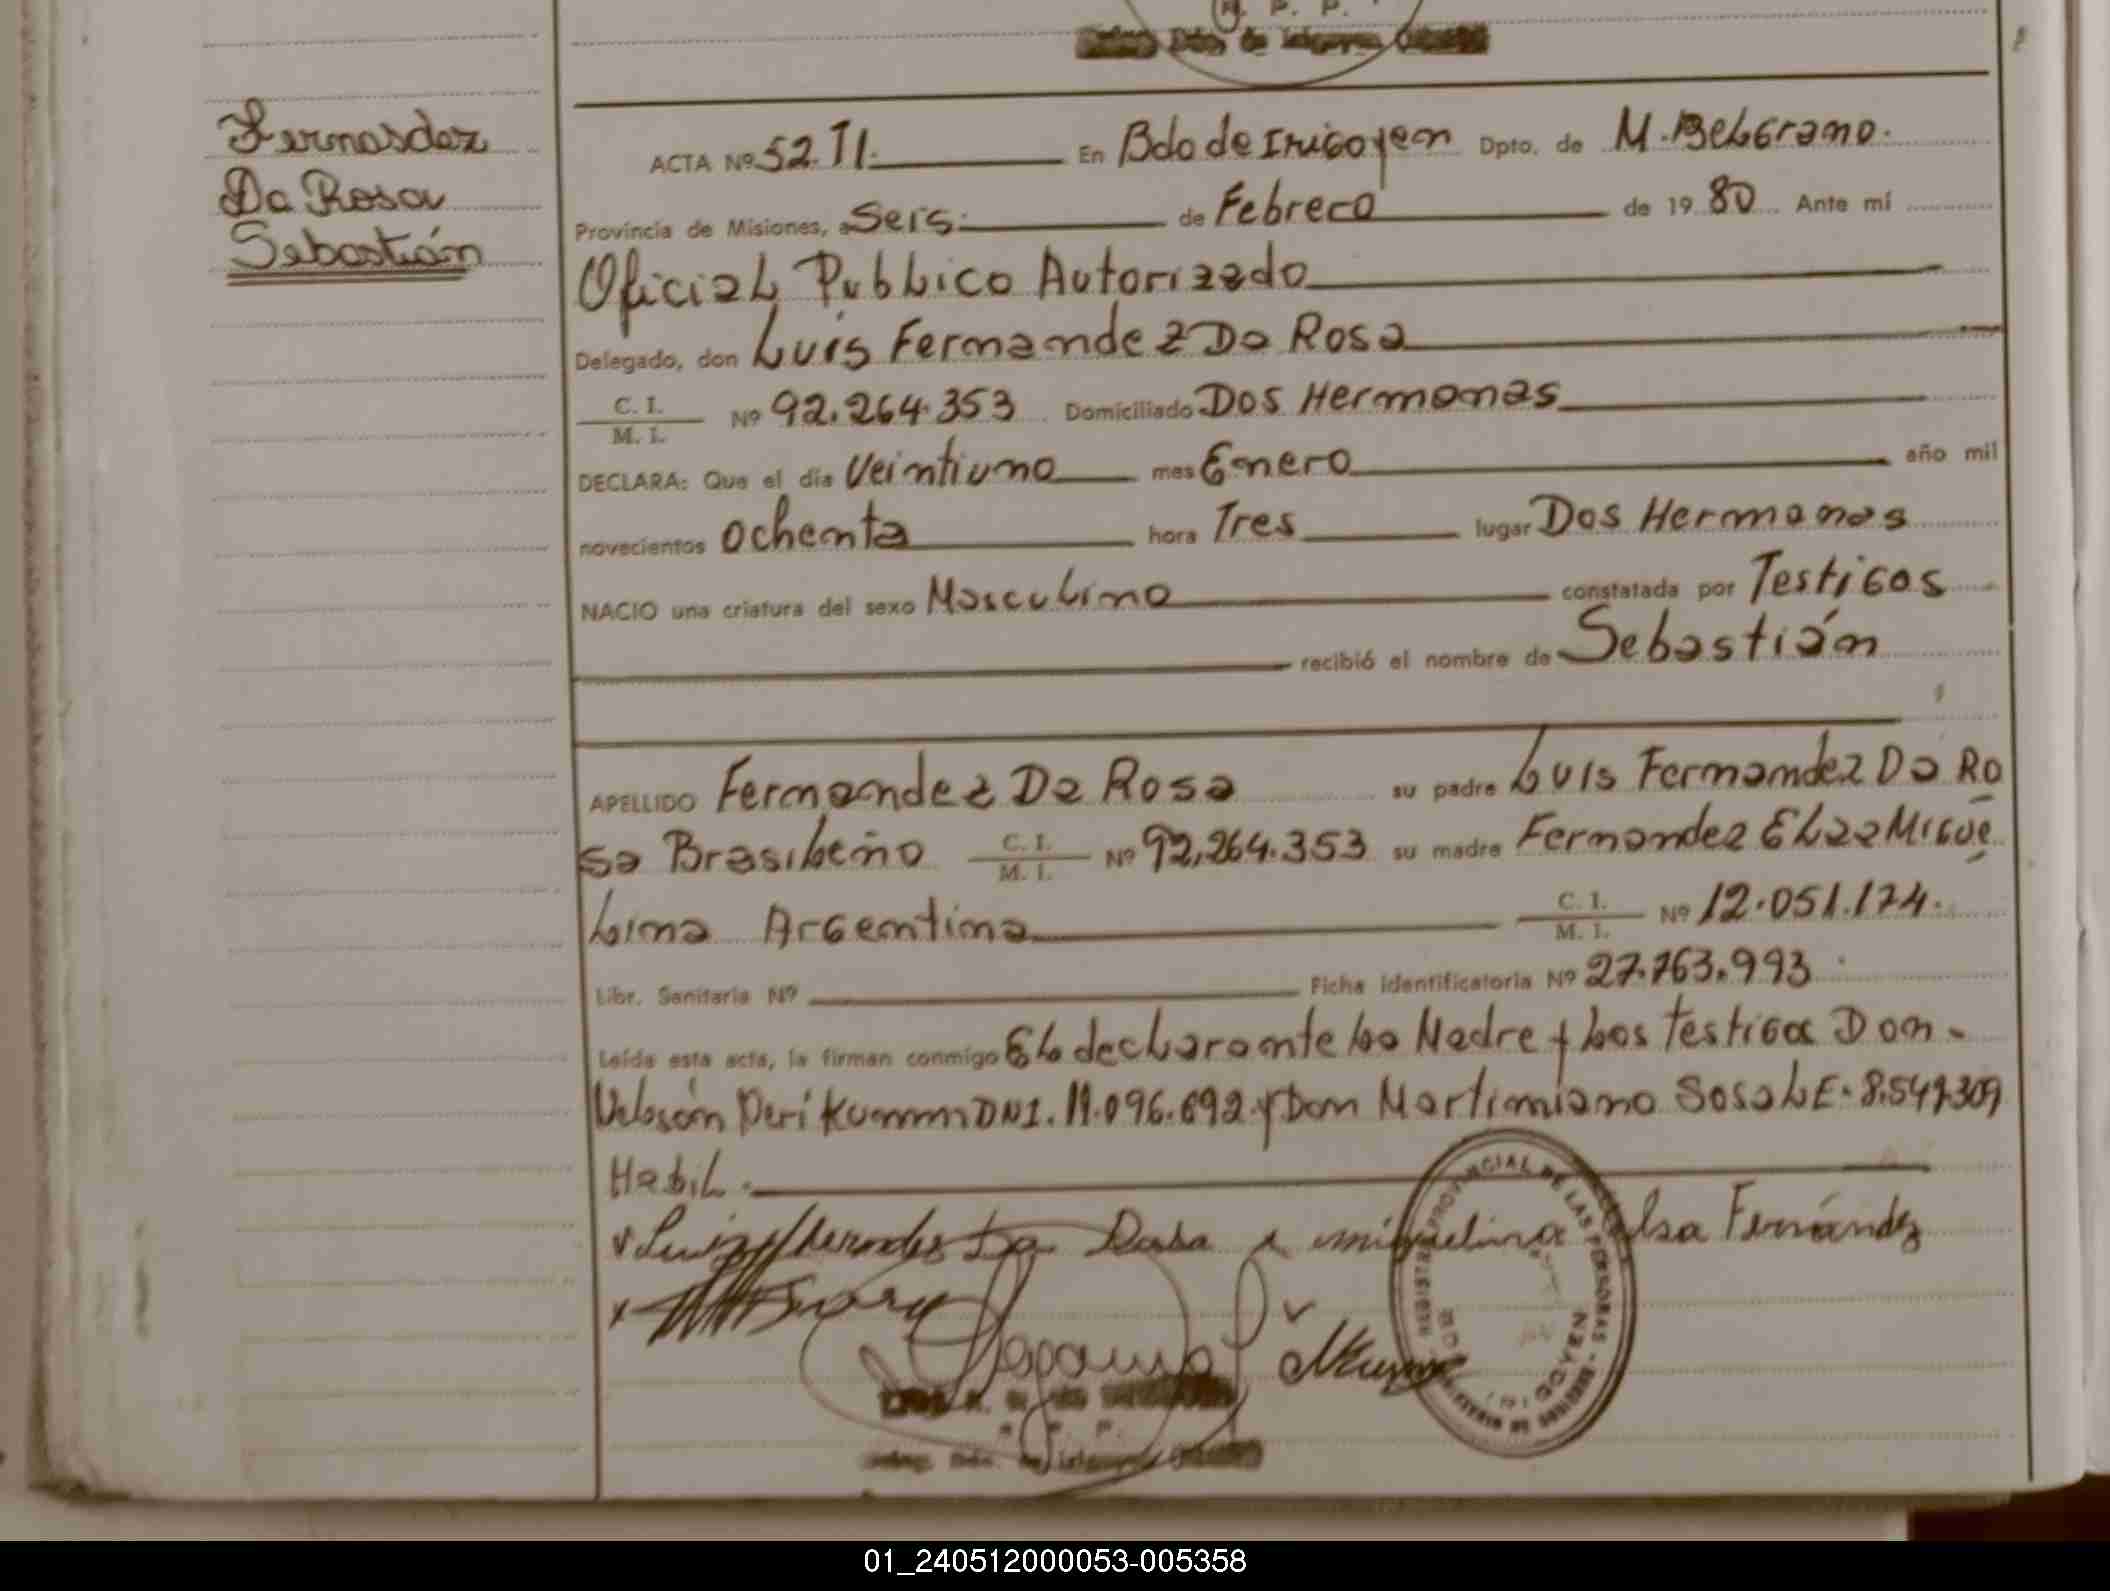 R. P. P.
Fernandez
Da Rosa
Sebastián
ACTA Nº 52. TI. En Bdo de Irigoyen Dpto. de M. Belgrano.
Provincia de Misiones, a Seis de Febrero de 19 80 Ante mí
Oficial Publico Autorizado
Delegado, don Luis Fernandez Da Rosa
C. I.
M. I. Nº 92.264.353 Domiciliado Dos Hermanas
DECLARA: Que el día Veintiuno mes Enero año mil
novecientos ochenta hora Tres lugar Dos Hermanas
NACIO una criatura del sexo Masculino constatada por Testigos
recibió el nombre de Sebastián
APELLIDO Fernandez Da Rosa su padre Luis Fernandez Da Ro
sa Brasileño C. I. M. I. Nº 92.264.353 su madre Fernandez Elza Migue
lina Argentina C. I. M. I. Nº 12.051.174.
Libr. Sanitaria Nº Ficha Identificatoria Nº 27.763.993
Leída esta acta, la firman conmigo El declarante la Madre y los Testigos Don
Kumm DNI. 11.096.692 y Don Martimiano Sosa LE. 8.549.309
Habil.
Da Rosa x miguelina elsa Fernández
REGISTRO PROVINCIAL DE LAS PERSONAS
BDO. DE IRIGOYEN
01_240512000053-005358